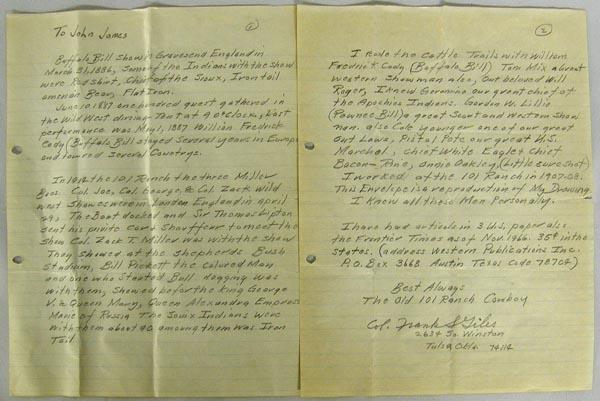 ①
To John James
Buffalo Bill Show in Gravesend England in
March 31, 1886, Some of the Indians with the show
were Red shirt, Chief of the Sioux, Iron tail
Bear, Flat Iron.
June 10 1887 one hundred guest gathered in
the Wild West dining Tent at 9 O'clock, Last
performance was May 1, 1887 William Fredrick
Cody (Buffalo Bill stayed Several years in Europe
and toured Several Countrys.
In 1914 the 101 Ranch the three Miller
Bros. Col. Joe, Col. George, & Col. Zack wild
west Shows were in London England in april
The Boat docked and Sir Thomas Lipton
sent his private car & Shouffeur to meet the
Show Col. Zack T. Miller was with the show
They showed at the shepherds Bush
Stadium, Bill Pickett the colured man
and one who started Bull dogging was
with them, Showed before the King George
V. & Queen Mary, Queen Alexandra Empress
Marie of Russia The Souix Indians were
with them about 90 among them was Iron
Tail
②
I rode the Cattle Trails with William
Fredrick Cody (Buffalo Bill) Tom Mix a Great
Western Showman also, Our beloved Will
Roger, I Knew Geronimo our great chief of
the Apachies Indians. Gordon W. Lillie
(Pawnee Bill) a great Scout and Western Show
man. also Cole younger one of our great
Out Laws, Pistol Pete our great U.S.
Marchel, Chief White Eagle & Chief
Bacon-Rine, annie Oakley, (Little sure shot)
I worked at the 101 Ranch in 1907-08.
This Envelope is a reproduction of My Drawing
I Know all these Men Personally.
I have had articels in 3 U.S. paper also
the Frontier Times as of Nov. 1966. 35¢ in the
States. (address Western Publications Inc.
P.O. Box 3668 Austin Texas Code 78704)
Best Always
The Old 101 Ranch Cowboy
Col. Frank S Giles
2634 So. Winston
Tulsa, Okla. 74114